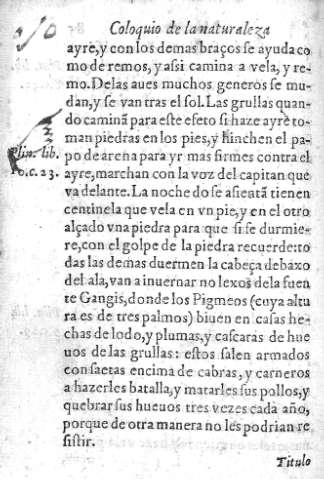 Coloquio de la naturaleza
ayre, y con los demas braços se ayuda co
mo de remos, y assi camina a vela, y re-
mo. De las aues muchos generos se mu-
dan, y se van tras el sol. Las grullas quan-
do caminã para este efeto si haze ayre to-
man piedras en los pies, y hinchen el pa-
po de arena para yr mas firmes contra el
Plin. lib.
10. c. 23.
ayre, marchan con la voz del capitan que
va delante. La noche do se assientã tienen
centinela que vela en vn pie, y en el otro
alçado vna piedra para que si se durmie-
re, con el golpe de la piedra recuerde: to
das las demas duermen la cabeça debaxo
del ala, van a inuernar no lexos de la fuen
te Gangis, donde los Pigmeos (cuya altu
ra es de tres palmos) biuen en casas he-
chas de lodo, y plumas, y cascaras de hue
uos de las grullas: estos salen armados
con saetas encima de cabras, y carneros
a hazerles batalla, y matarles sus pollos, y
quebrar sus hueuos tres vezes cada año,
porque de otra manera no les podrian re
sistir.
Titulo